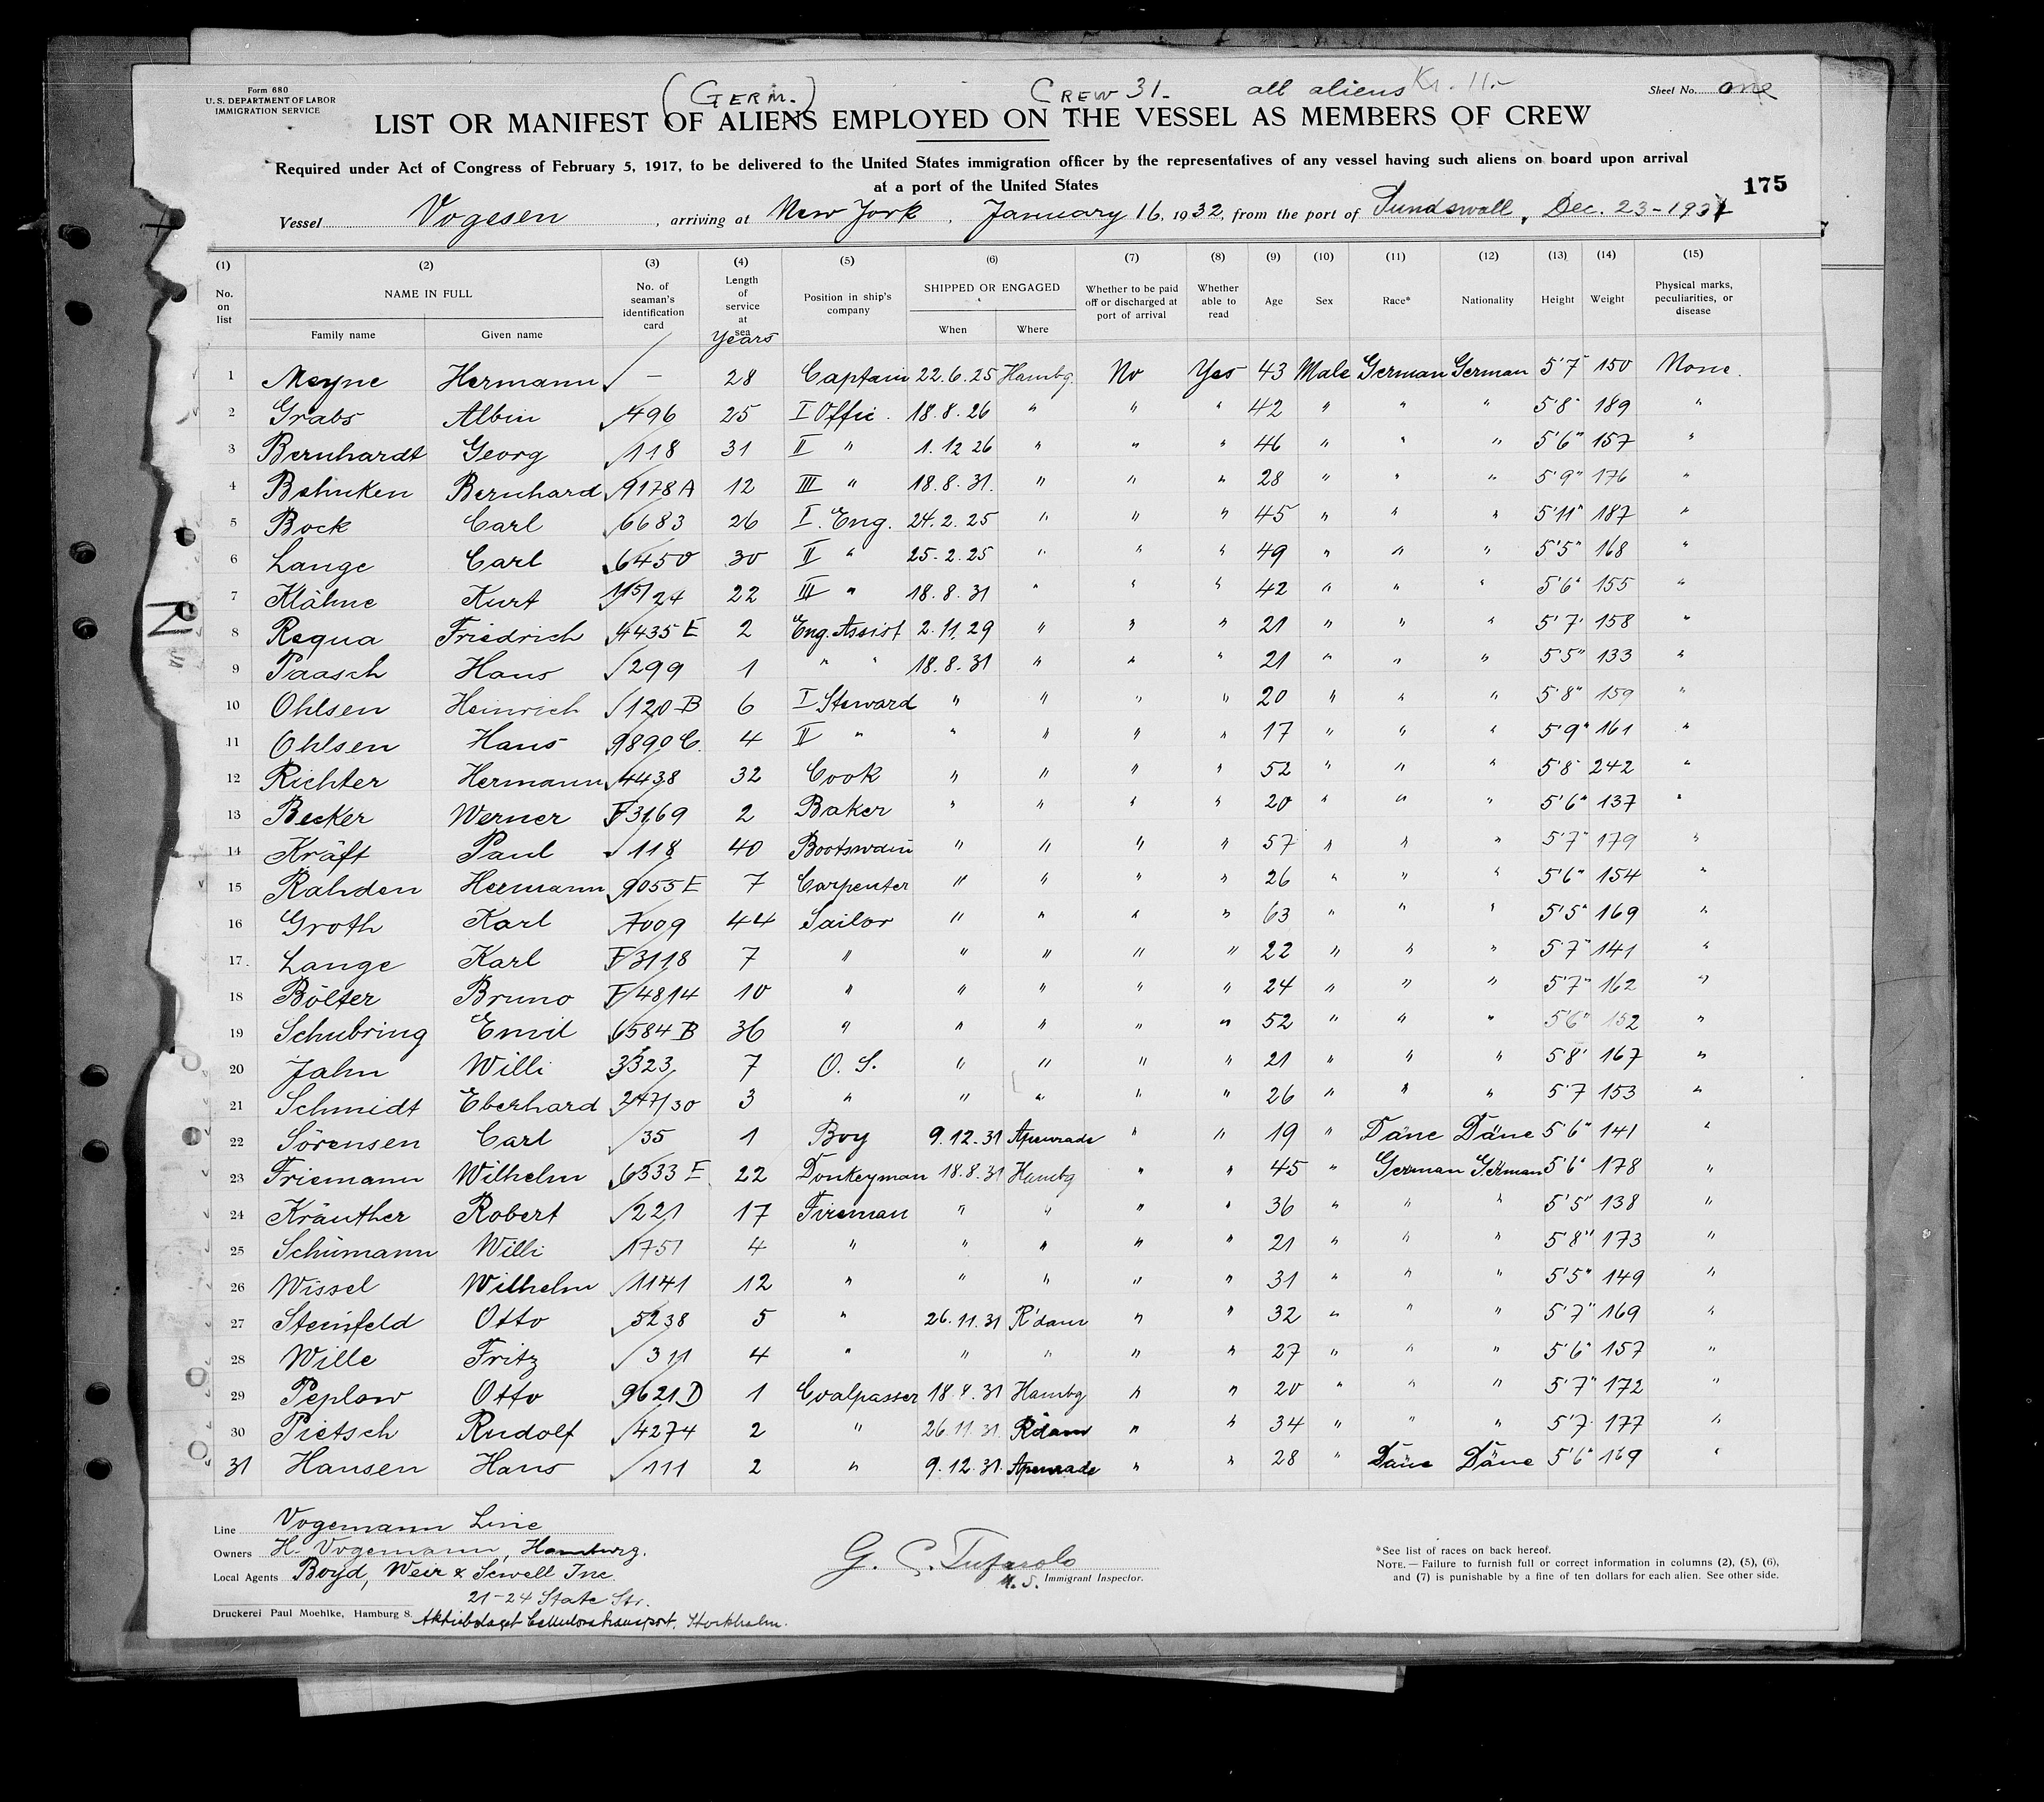 Form 680
U. S. DEPARTMENT OF LABOR
IMMIGRATION SERVICE
(GERM.) CREW 31. all aliens Kr. 11.-
Sheet No. one
LIST OR MANIFEST OF ALIENS EMPLOYED ON THE VESSEL AS MEMBERS OF CREW
Required under Act of Congress of February 5, 1917, to be delivered to the United States immigration officer by the representatives of any vessel having such aliens on board upon arrival
at a port of the United States
175
Vessel Vogesen, arriving at New York, January 16, 1932, from the port of Sundswall, Dec. 23-1931
(1) (2) (3) (4) (5) (6) (7) (8) (9) (10) (11) (12) (13) (14) (15)
No. on list NAME IN FULL Family name Given name No. of seaman's identification card Length of service at sea Years Position in ship's company SHIPPED OR ENGAGED When Where Whether to be paid off or discharged at port of arrival Whether able to read Age Sex Race* Nationality Height Weight Physical marks, peculiarities, or disease
1 Meyne Hermann √ - 28 Captain 22.6.25 Hambg. No Yes 43 Male German German 5'7" 150 None.
2 Grabs Albin √496 25 I Offic. 18.8.26 " " " 42 " " " 5'8" 189 "
3 Bernhardt Georg √118 31 II " 1.12 26 " " " 46 " " " 5'6" 157 "
4 Behnken Bernhard √9178 A 12 III " 18.8.31. " " " 28 " " " 5'9" 176 "
5 Bock Carl √6683 26 I. Eng. 24.2.25 " " " 45 " " " 5'11" 187 "
6 Lange Carl 6450 30 II " 25-2.25 " " " 49 " " " 5'5" 168 "
7 Klähne Kurt 115/24 22 III " 18.8.31 " " " 42 " " " 5'6" 155 "
8 Requa Friedrich 4435 E 2 Eng. Assist 2.11.29 " " " 21 " " " 5'7" 158 "
9 Paasch Hans √299 1 " " 18.8.31 " " " 21 " " " 5'5" 133 "
10 Ohlsen Heinrich √120-B 6 I Steward " " " " 20 " " " 5'8" 159 "
11 Ohlsen Hans 9890 C. 4 II " " " " " 17 " " " 5'9" 161 "
12 Richter Hermann 4438 32 Cook " " " " 52 " " " 5'8" 242 "
13 Becker Werner F3169 2 Baker " " " " 20 " " " 5'6" 137 "
14 Kräft Paul √118 40 Bootswain " " " " 57 " " " 5'7" 179 "
15 Rahden Hermann 9055 E 7 Carpenter " " " " 26 " " " 5'6" 154 "
16 Groth Karl 7009 44 Sailor " " " " 63 " " " 5'5" 169 "
17. Lange Karl F3118 7 " " " " " 22 " " " 5'7" 141 "
18 Bölter Bruno F4814 10 " " " " " 24 " " " 5'7" 162 "
19 Schubring Emil 6584 B 36 " " " " " 52 " " " 5'6" 152 "
20 Jahn Willi 3323 7 O. S. " " " " 21 " " " 5'8" 167 "
21 Schmidt Eberhard 247/30 3 " " " " " 26 " " " 5'7 153 "
22 Sörensen Carl √35 1 Boy 9.12.31 Apenrade " " 19 " Däne Däne 5'6" 141 "
23 Friemann Wilhelm 6333 E 22 Donkeyman 18.8.31 Hambg " " 45 " German German 5'6" 178 "
24 Kräuther Robert √221 17 Fireman " " " " 36 " " " 5'5" 138 "
25 Schümann Willi √1751 4 " " " " " 21 " " " 5'8" 173 "
26 Wissel Wilhelm √1141 12 " " " " " 31 " " " 5'5" 149 "
27 Steinfeld Otto √5238 5 " 26.11.31 R'dam " " 32 " " " 5'7" 169 "
28 Wille Fritz √311 4 " " " " " 27 " " " 5'6" 157 "
29 Peplow Otto 9621 D 1 Coalpasser 18.8.31 Hambg " " 20 " " " 5'7" 172 "
30 Pietsch Rudolf √4274 2 " 26.11.31. R'dam " " 34 " " " 5'7" 177 "
31 Hansen Hans √111 2 " 9.12.31. Apenrade " " 28 " Däne Däne 5'6" 169 "
Line Vogemann Line
Owners H. Vogemann, Hamburg.
Local Agents Boyd, Weir & Sewell Inc.
21-24 State Str.
Druckerei Paul Moehlke, Hamburg 8. Aktiebolaget Cellulosatransport, Stockholm.
G. C. Tufarolo
U. S. Immigrant Inspector.
*See list of races on back hereof.
NOTE.—Failure to furnish full or correct information in columns (2), (5), (6),
and (7) is punishable by a fine of ten dollars for each alien. See other side.